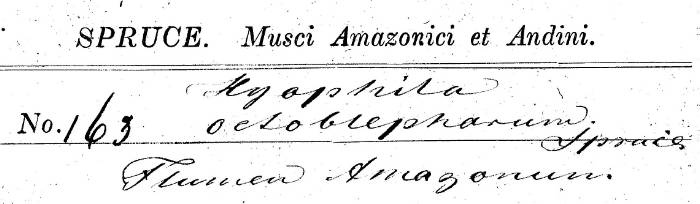 SPRUCE. Musci Amazonici et Andini.
Hyophila
No. 163 octoblepharum.
Spruce
Flumen Amazonum.